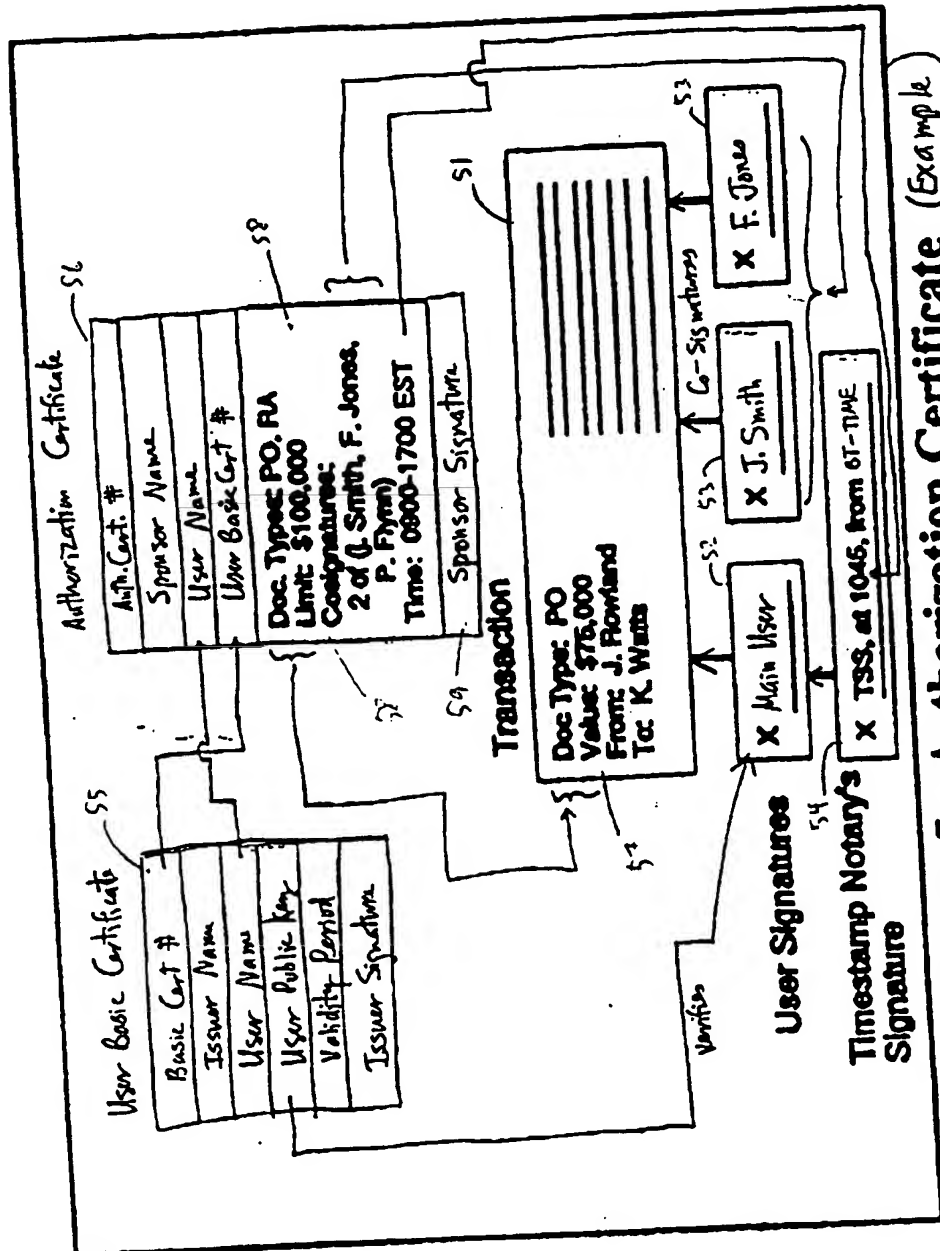 User Basic Certificate
55
Basic Cert #
Issuer Name
User Name
User Public Key
Validity Period
Issuer Signature
Authorization Certificate
56
Auth. Cert. #
Sponsor Name
User Name
User Basic Cert #
58
Doc. Types: PO, RA
Limit: $100,000
Cosignatures:
2 of (J. Smith, F. Jones,
P. Flynn)
Time: 0900-1700 EST
Sponsor Signature
59
Transaction
51
Doc Type: PO
Value: $75,000
From: J. Rowland
To: K. Watts
Verifies
User Signatures
52
X Main User
53
X J. Smith
Co-Signatures
53
X F. Jones
54
Timestamp Notary's
Signature
X TSS, at 1045, from BT-TIME
Authorization Certificate (Example